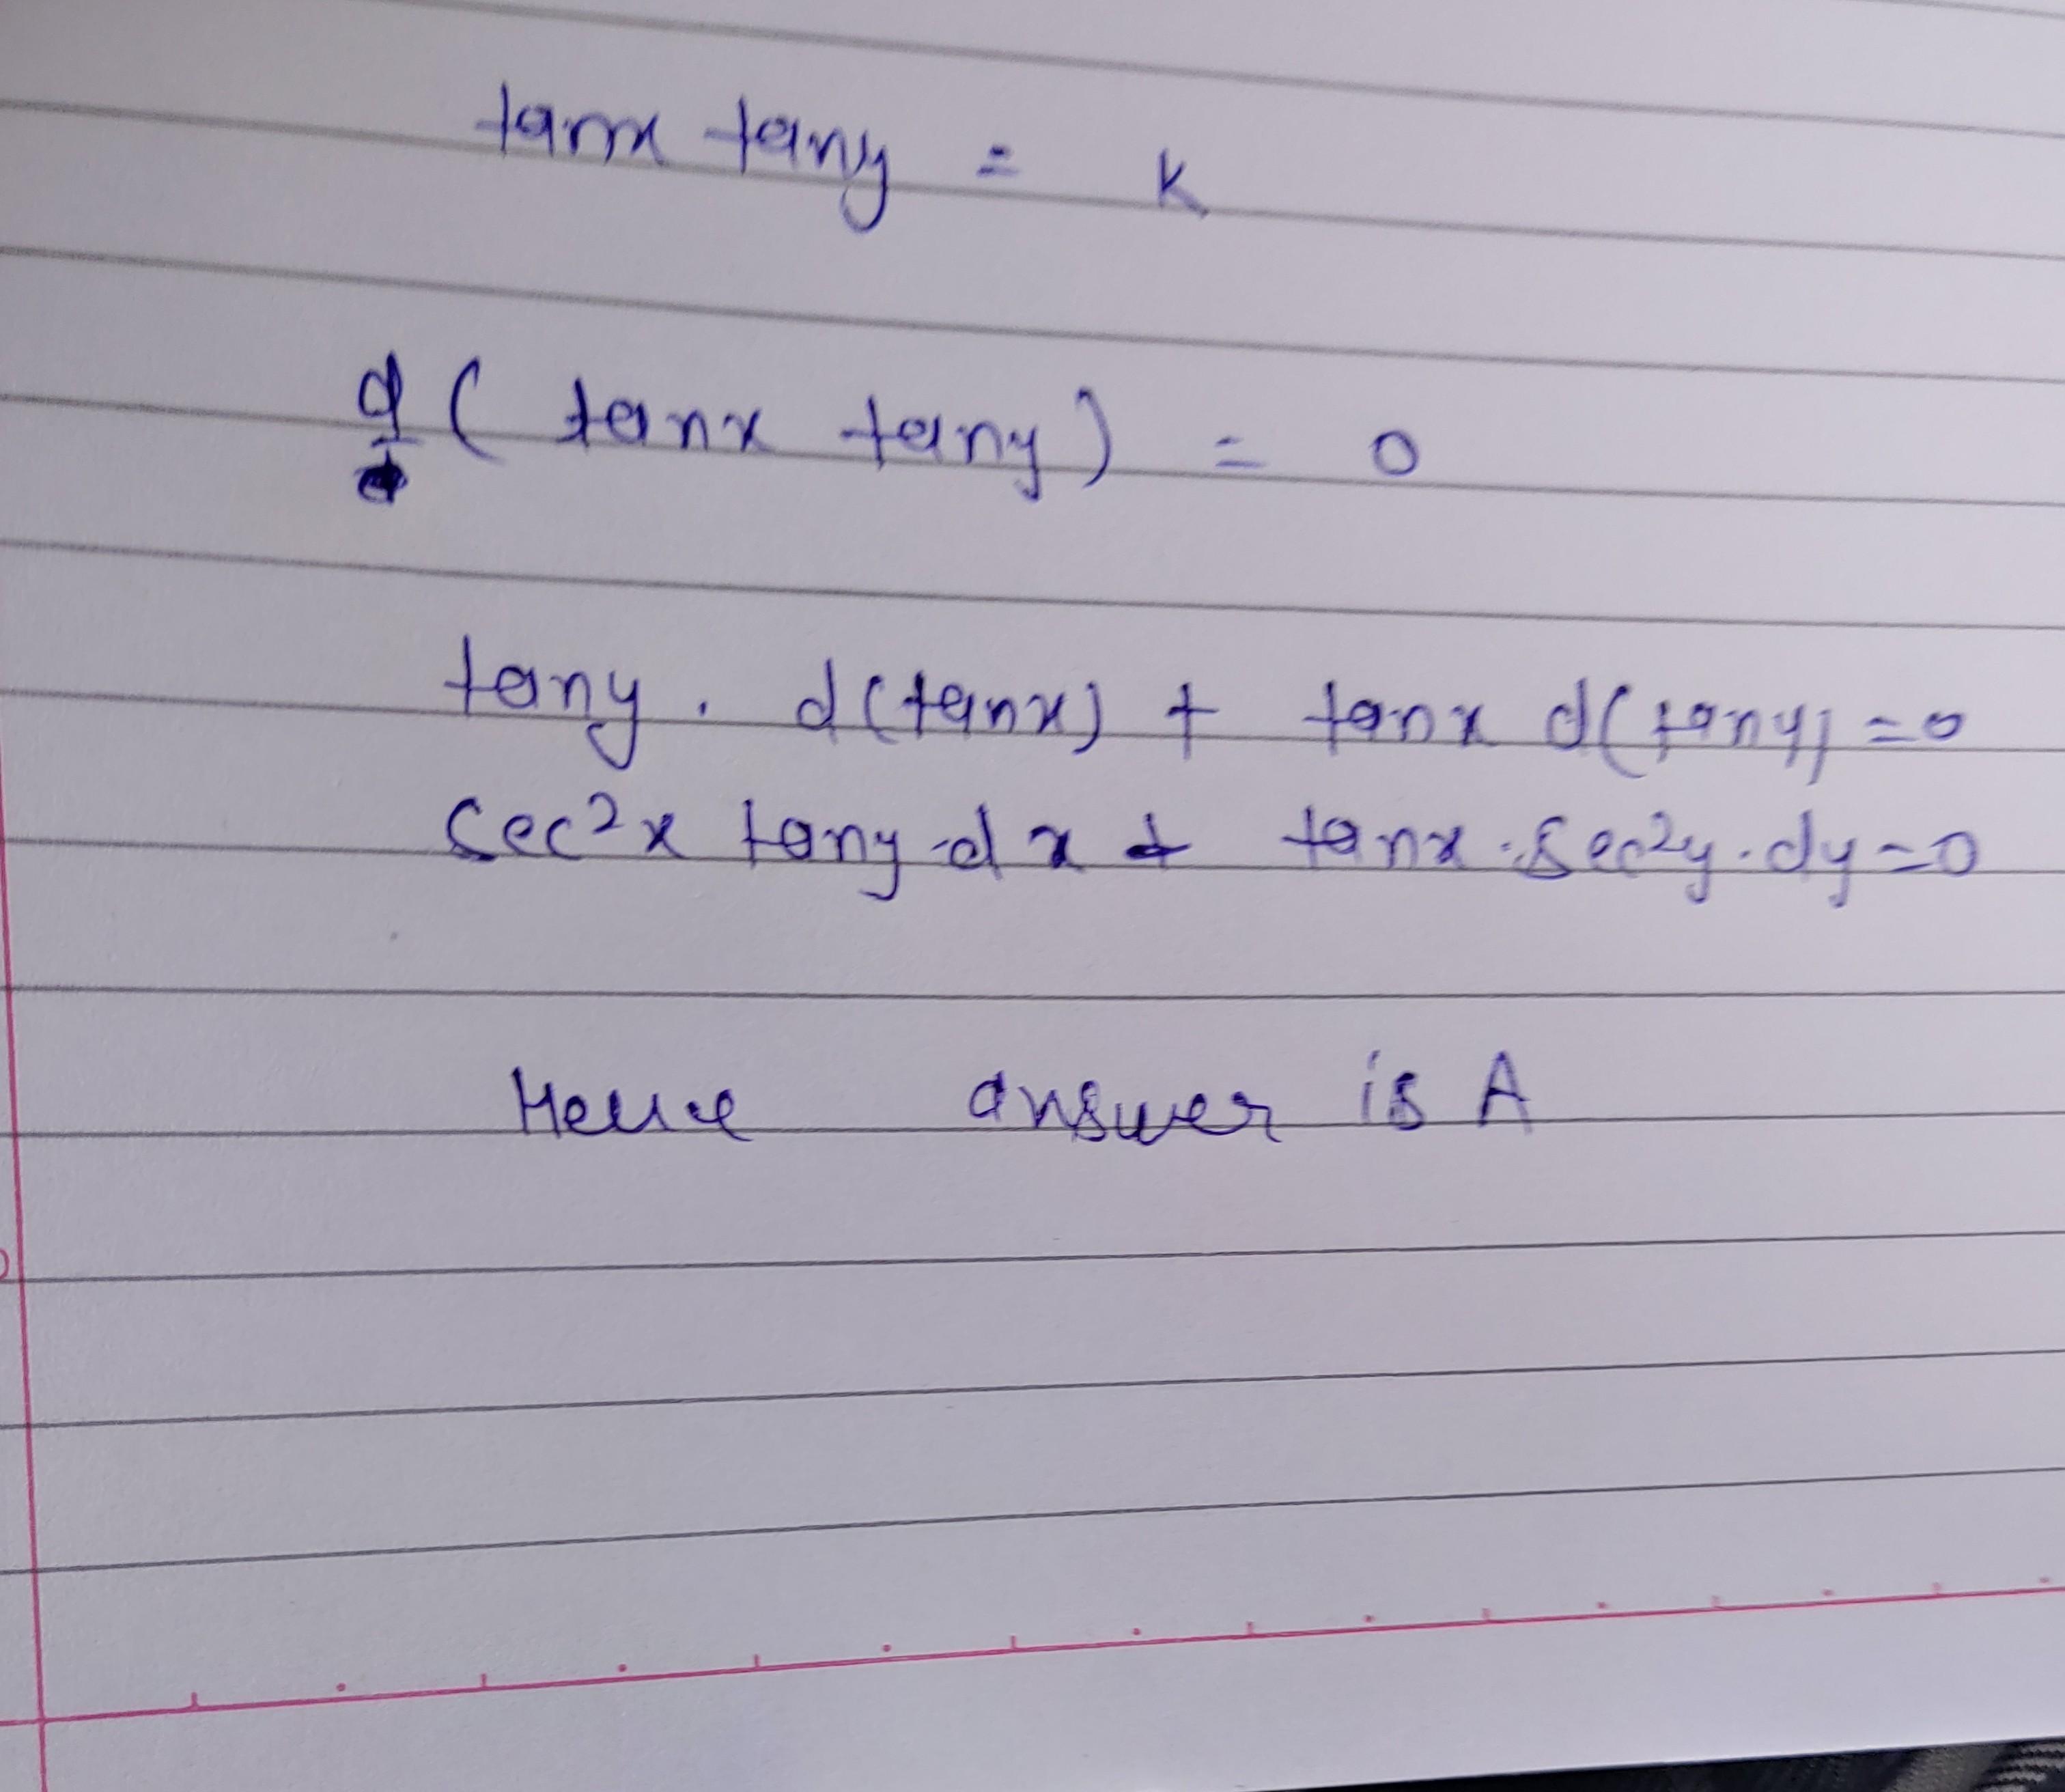 tanx tany = k
d ( tanx tany ) = 0
tany . d(tanx) + tanx d(tany) = 0
sec²x tany dx + tanx . sec²y . dy = 0
Hence answer is A